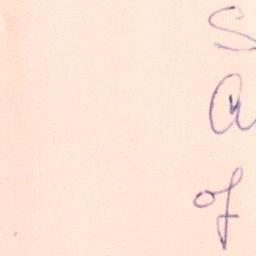 S
a
of